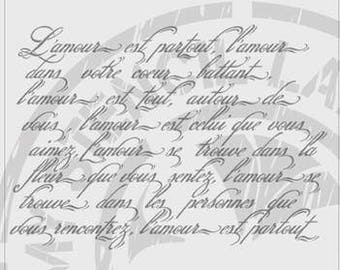 L'amour est partout, l'amour
dans votre coeur battant,
l'amour est tout, autour de
vous, l'amour est celui que vous
aimez, l'amour se trouve dans la
fleur que vous sentez, l'amour se
trouve dans les personnes que
vous rencontrez, l'amour est partout